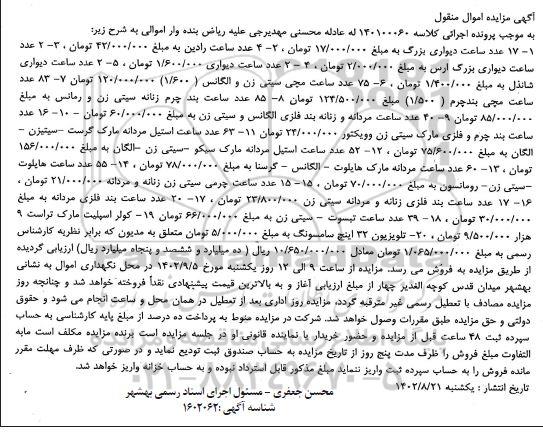 آگهی مزایده اموال منقول
به موجب پرونده اجرائی کلاسه ۱۴۰۱۰۰۰۶۰ له عادله محسنی مهدیرجی علیه ریاض بنده وار اموالی به شرح زیر:
۱- ۱۷ عدد ساعت دیواری بزرگ به مبلغ ۱۷/۰۰۰/۰۰۰ تومان ، ۲- ۴ عدد ساعت رادین به مبلغ ۴۲/۰۰۰/۰۰۰ تومان ، ۳- ۲ عدد
ساعت دیواری بزرگ آرس به مبلغ ۲/۰۰۰/۰۰۰ تومان ، ۴ – ۲ عدد ساعت دیواری ۱/۶۰۰/۰۰۰ تومان ، ۵- ۲ عدد ساعت دیواری
شانذل به مبلغ ۱/۴۰۰/۰۰۰ تومان ، ۶- ۷۵ عدد ساعت مچی سیتی زن و الگانس ( ۱/۶۰۰) ۱۲۰/۰۰۰/۰۰۰ تومان ۷- ۸۳ عدد
ساعت مچی بندچرم ( ۱/۵۰۰) مبلغ ۱۲۴/۵۰۰/۰۰۰ تومان ۸- ۸۵ عدد ساعت بند چرم زنانه سیتی زن و رمانس به مبلغ
۸۵/۰۰۰/۰۰۰ تومان ۹- ۴۰ عدد ساعت مردانه و زنانه بند فلزی الگانس و سیتی زن به مبلغ ۶۰/۰۰۰/۰۰۰ تومان – ۱۰- ۱۶ عدد
ساعت بند چرم و فلزی مارک سیتی زن وویکتور ۲۴/۰۰۰/۰۰۰ تومان ۱۱- ۶۳ عدد ساعت استیل مردانه مارک گرست –سیتیزن –
الگان به مبلغ ۷۵/۶۰۰/۰۰۰ تومان ، ۱۲- ۵۲ عدد ساعت استیل مردانه مارک سیکو –سیتی زن –الگان به مبلغ ۱۵۶/۰۰۰/۰۰۰
تومان ، ۱۳- ۶۰ عدد ساعت مردانه مارک هایلوت – الگانس – گرسنا به مبلغ ۷۸/۰۰۰/۰۰۰ تومان ، ۱۴- ۵۵ عدد ساعت هایلوت
–سیتی زن- رومانسون به مبلغ ۷۰/۰۰۰/۰۰۰ تومان ، ۱۵- ۱۵ عدد ساعت چرمی سیتی زن زنانه و مردانه ۲۱/۰۰۰/۰۰۰ تومان ،
۱۶- ۱۷ عدد ساعت بند فلزی زنانه و مردانه سیتی زن ۲۳/۸۰۰/۰۰۰ تومان ، ۱۷- ۲۰ عدد ساعت بند فلزی مردانه به مبلغ
۳۰/۰۰۰/۰۰۰ تومان ، ۱۸- ۳۹ عدد ساعت تیسوت – سیتی زن به مبلغ ۶۶/۰۰۰/۰۰۰ تومان ۱۹- کولر اسپلیت مارک تراست ۹
هزار ۹/۵۰۰/۰۰۰ تومان ، ۲۰- تلویزیون ۳۲ اینچ سامسونگ به مبلغ ۵/۰۰۰/۰۰۰ تومان متعلق به مدیون که برابر نظریه کارشناس
رسمی به مبلغ ۱/۰۶۵/۰۰۰/۰۰۰ تومان معادل ۱۰/۶۵۰/۰۰۰/۰۰۰ ریال ( ده میلیارد و ششصد و پنجاه میلیارد ریال) ارزیابی گردیده
از طریق مزایده به فروش می رسد. مزایده از ساعت ۹ الی ۱۲ روز یکشنبه مورخ ۱۴۰۲/۹/۵ در محل نگهداری اموال به نشانی
بهشهر میدان قدس کوچه الغدیر چهار از مبلغ ارزیابی آغاز و به بالاترین قیمت پیشنهادی نقداً فروخته خواهد شد و چنانچه روز
مزایده مصادف با تعطیل رسمی غیر مترقبه گردد، مزایده روز اداری بعد از تعطیل در همان محل و ساعت انجام می شود و حقوق
دولتی و حق مزایده طبق مقررات وصول خواهد شد. شرکت در مزایده منوط به پرداخت ده درصد از مبلغ پایه کارشناسی به حساب
سپرده ثبت ۴۸ ساعت قبل از مزایده و حضور خریدار یا نماینده قانونی او در جلسه مزایده است برنده مزایده مکلف است مابه
التفاوت مبلغ فروش را ظرف مدت پنج روز از تاریخ مزایده به حساب صندوق ثبت تودیع نماید و در صورتی که ظرف مهلت مقرر
مانده فروش را به حساب سپرده ثبت واریز ننماید مبلغ مذکور قابل استرداد نبوده و به حساب خزانه واریز خواهد شد.
تاریخ انتشار : یکشنبه ۱۴۰۲/۸/۲۱
محسن جعفری – مسئول اجرای اسناد رسمی بهشهر
شناسه آگهی: ۱۶۰۲۰۶۲